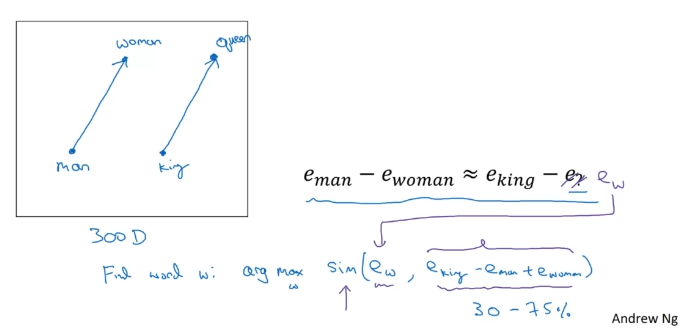 woman
queen
man
king
e_man − e_woman ≈ e_king − e_? e_w
300D
Find word w: arg max_w sim(e_w, e_king − e_man + e_woman)
30 - 75%
Andrew Ng